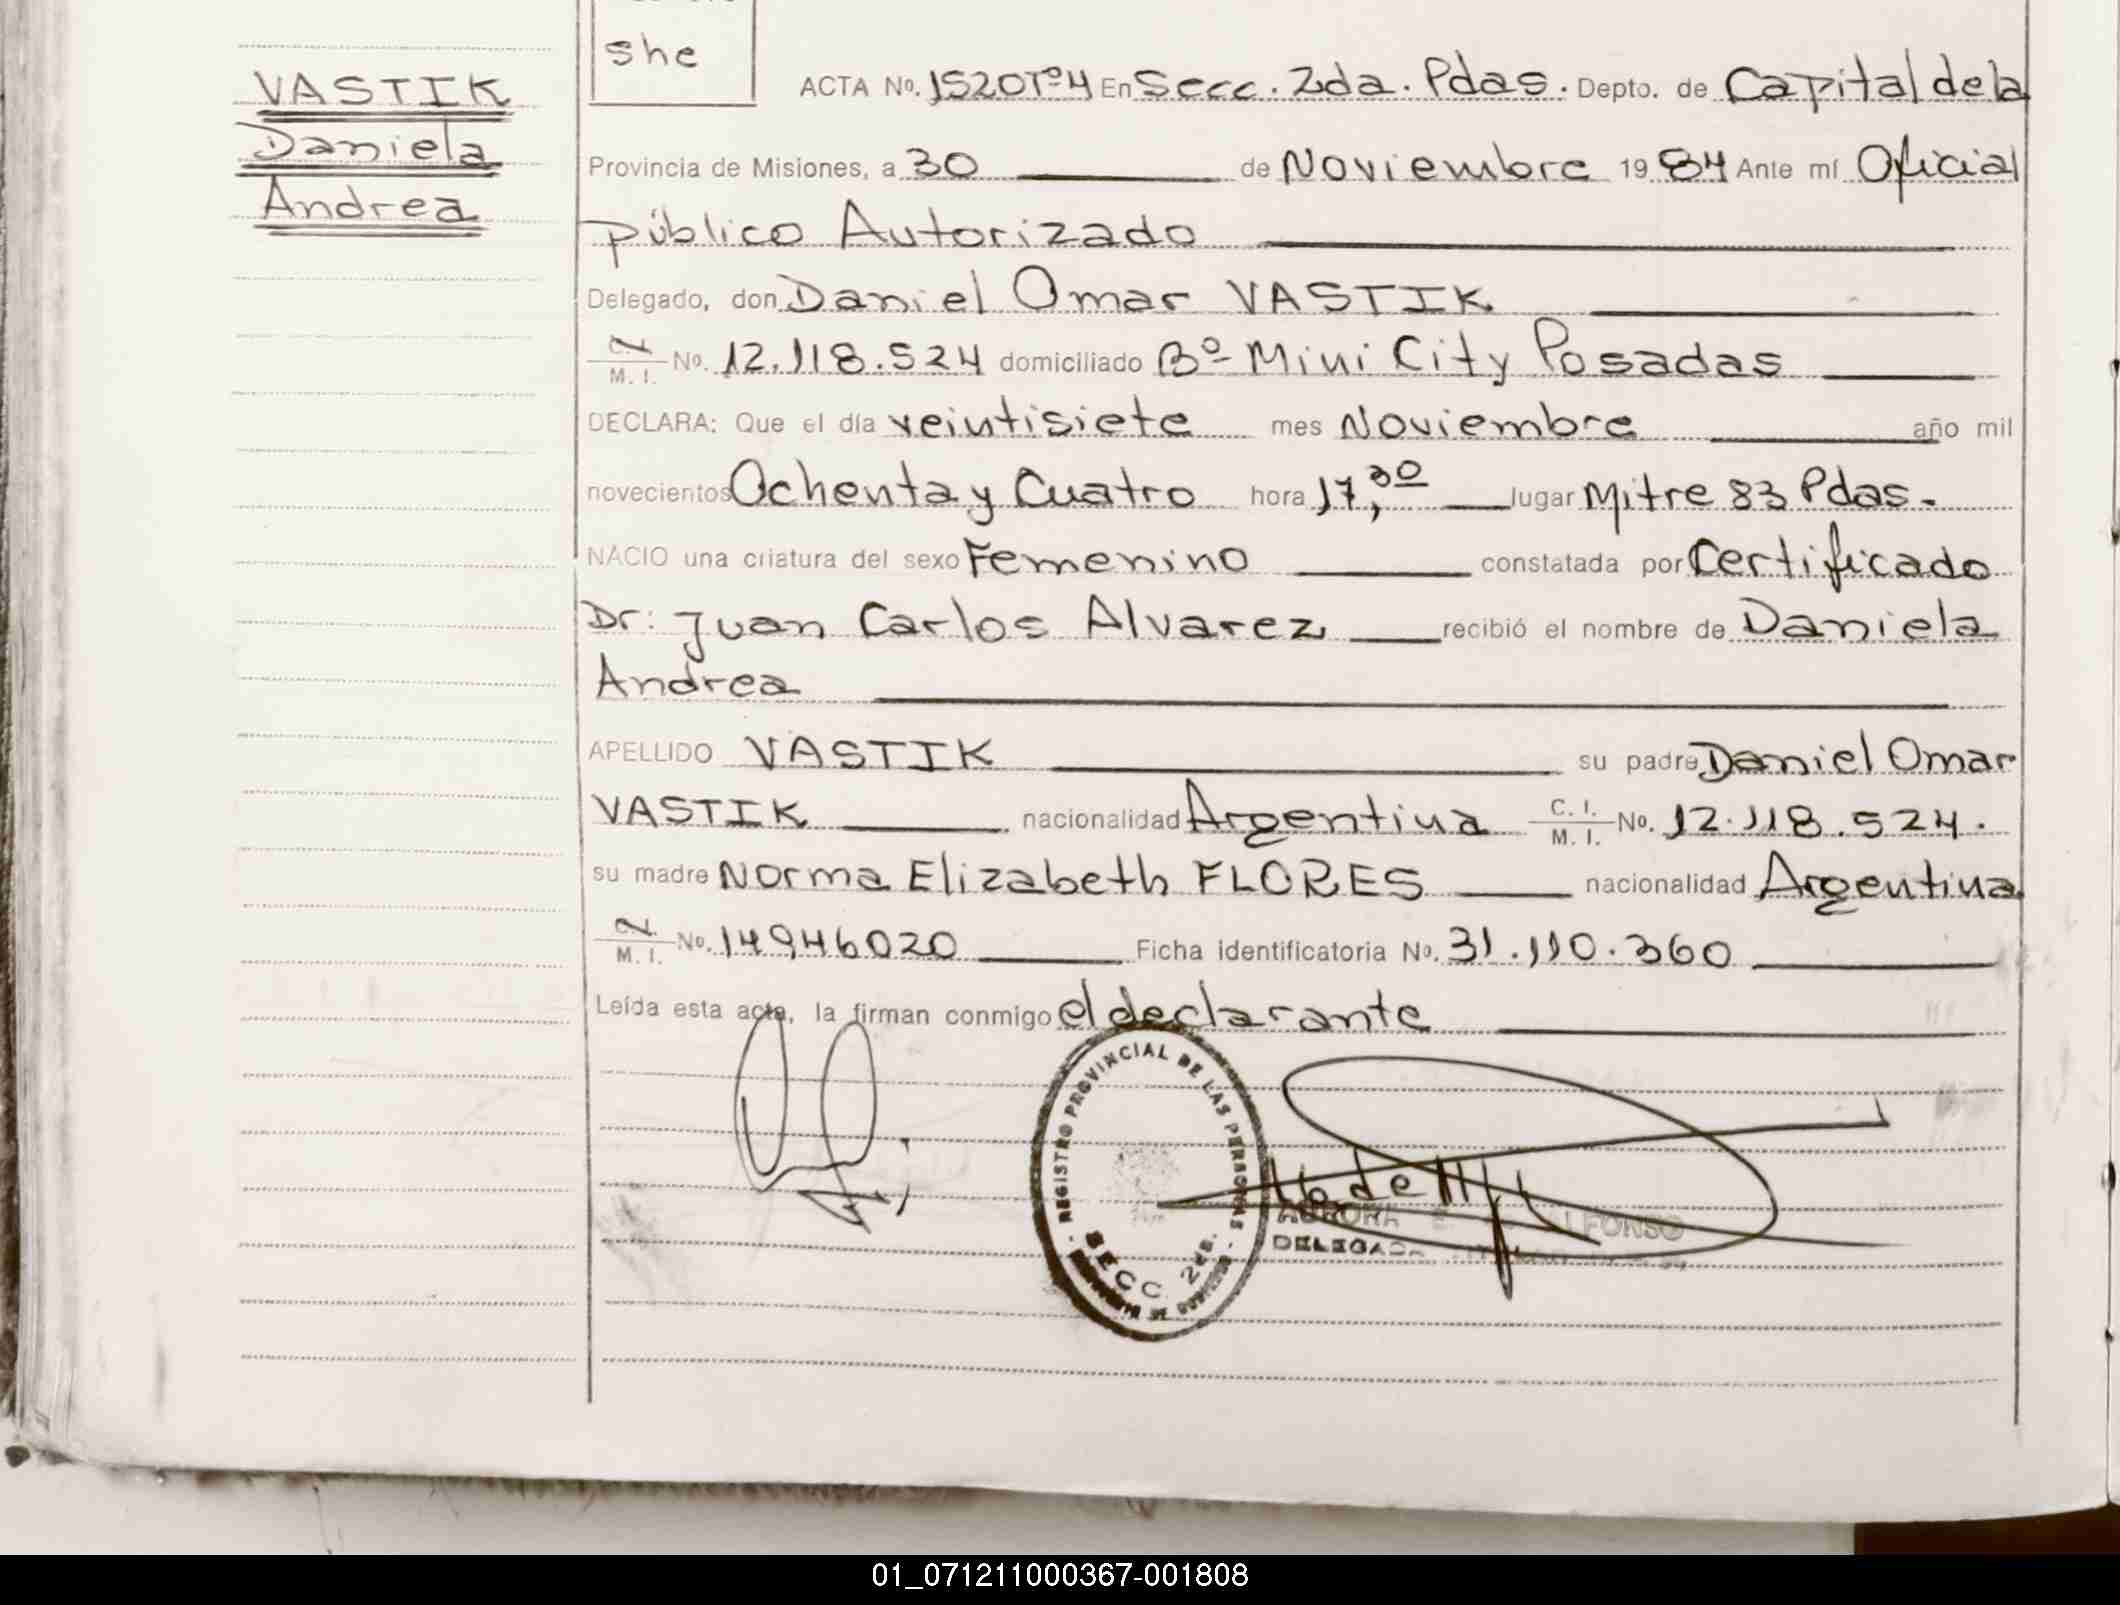 VASTIK
Daniela
Andrea
she
ACTA No. 1520Tº4 En Secc. 2da. Pdas. Depto. de Capital de la
Provincia de Misiones, a 30 de Noviembre 1984 Ante mí Oficial
público Autorizado
Delegado, don Daniel Omar VASTIK
C.I. M. I. No. 12.118.524 domiciliado Bº Mini City Posadas
DECLARA: Que el día veintisiete mes Noviembre año mil
novecientos Ochenta y Cuatro hora 17,30 lugar Mitre 83 Pdas.
NACIO una criatura del sexo Femenino constatada por Certificado
Dr: Juan Carlos Alvarez recibió el nombre de Daniela
Andrea
APELLIDO VASTIK su padre Daniel Omar
VASTIK nacionalidad Argentina C. I. M. I. No. 12.118.524.
su madre Norma Elizabeth FLORES nacionalidad Argentina
C.I. M. I. No. 14946020 Ficha identificatoria No. 31.110.360
Leída esta acta, la firman conmigo el declarante
REGISTRO PROVINCIAL DE LAS PERSONAS
SECC. 2da.
DELEGADA
01_071211000367-001808